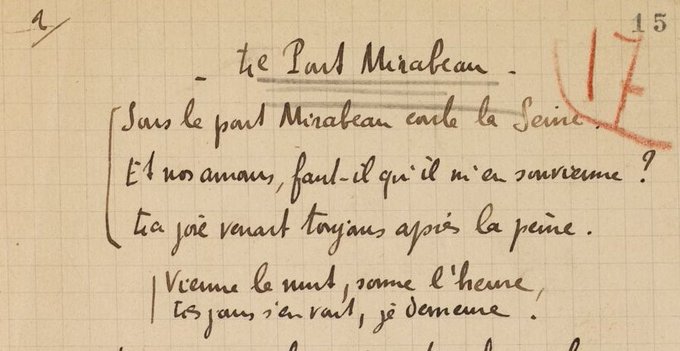 2/ 15
17
- Le Pont Mirabeau.
Sous le pont Mirabeau coule la Seine.
Et nos amours, faut-il qu'il m'en souvienne ?
La joie venait toujours après la peine.
Vienne la nuit, sonne l'heure,
Les jours s'en vont, je demeure.